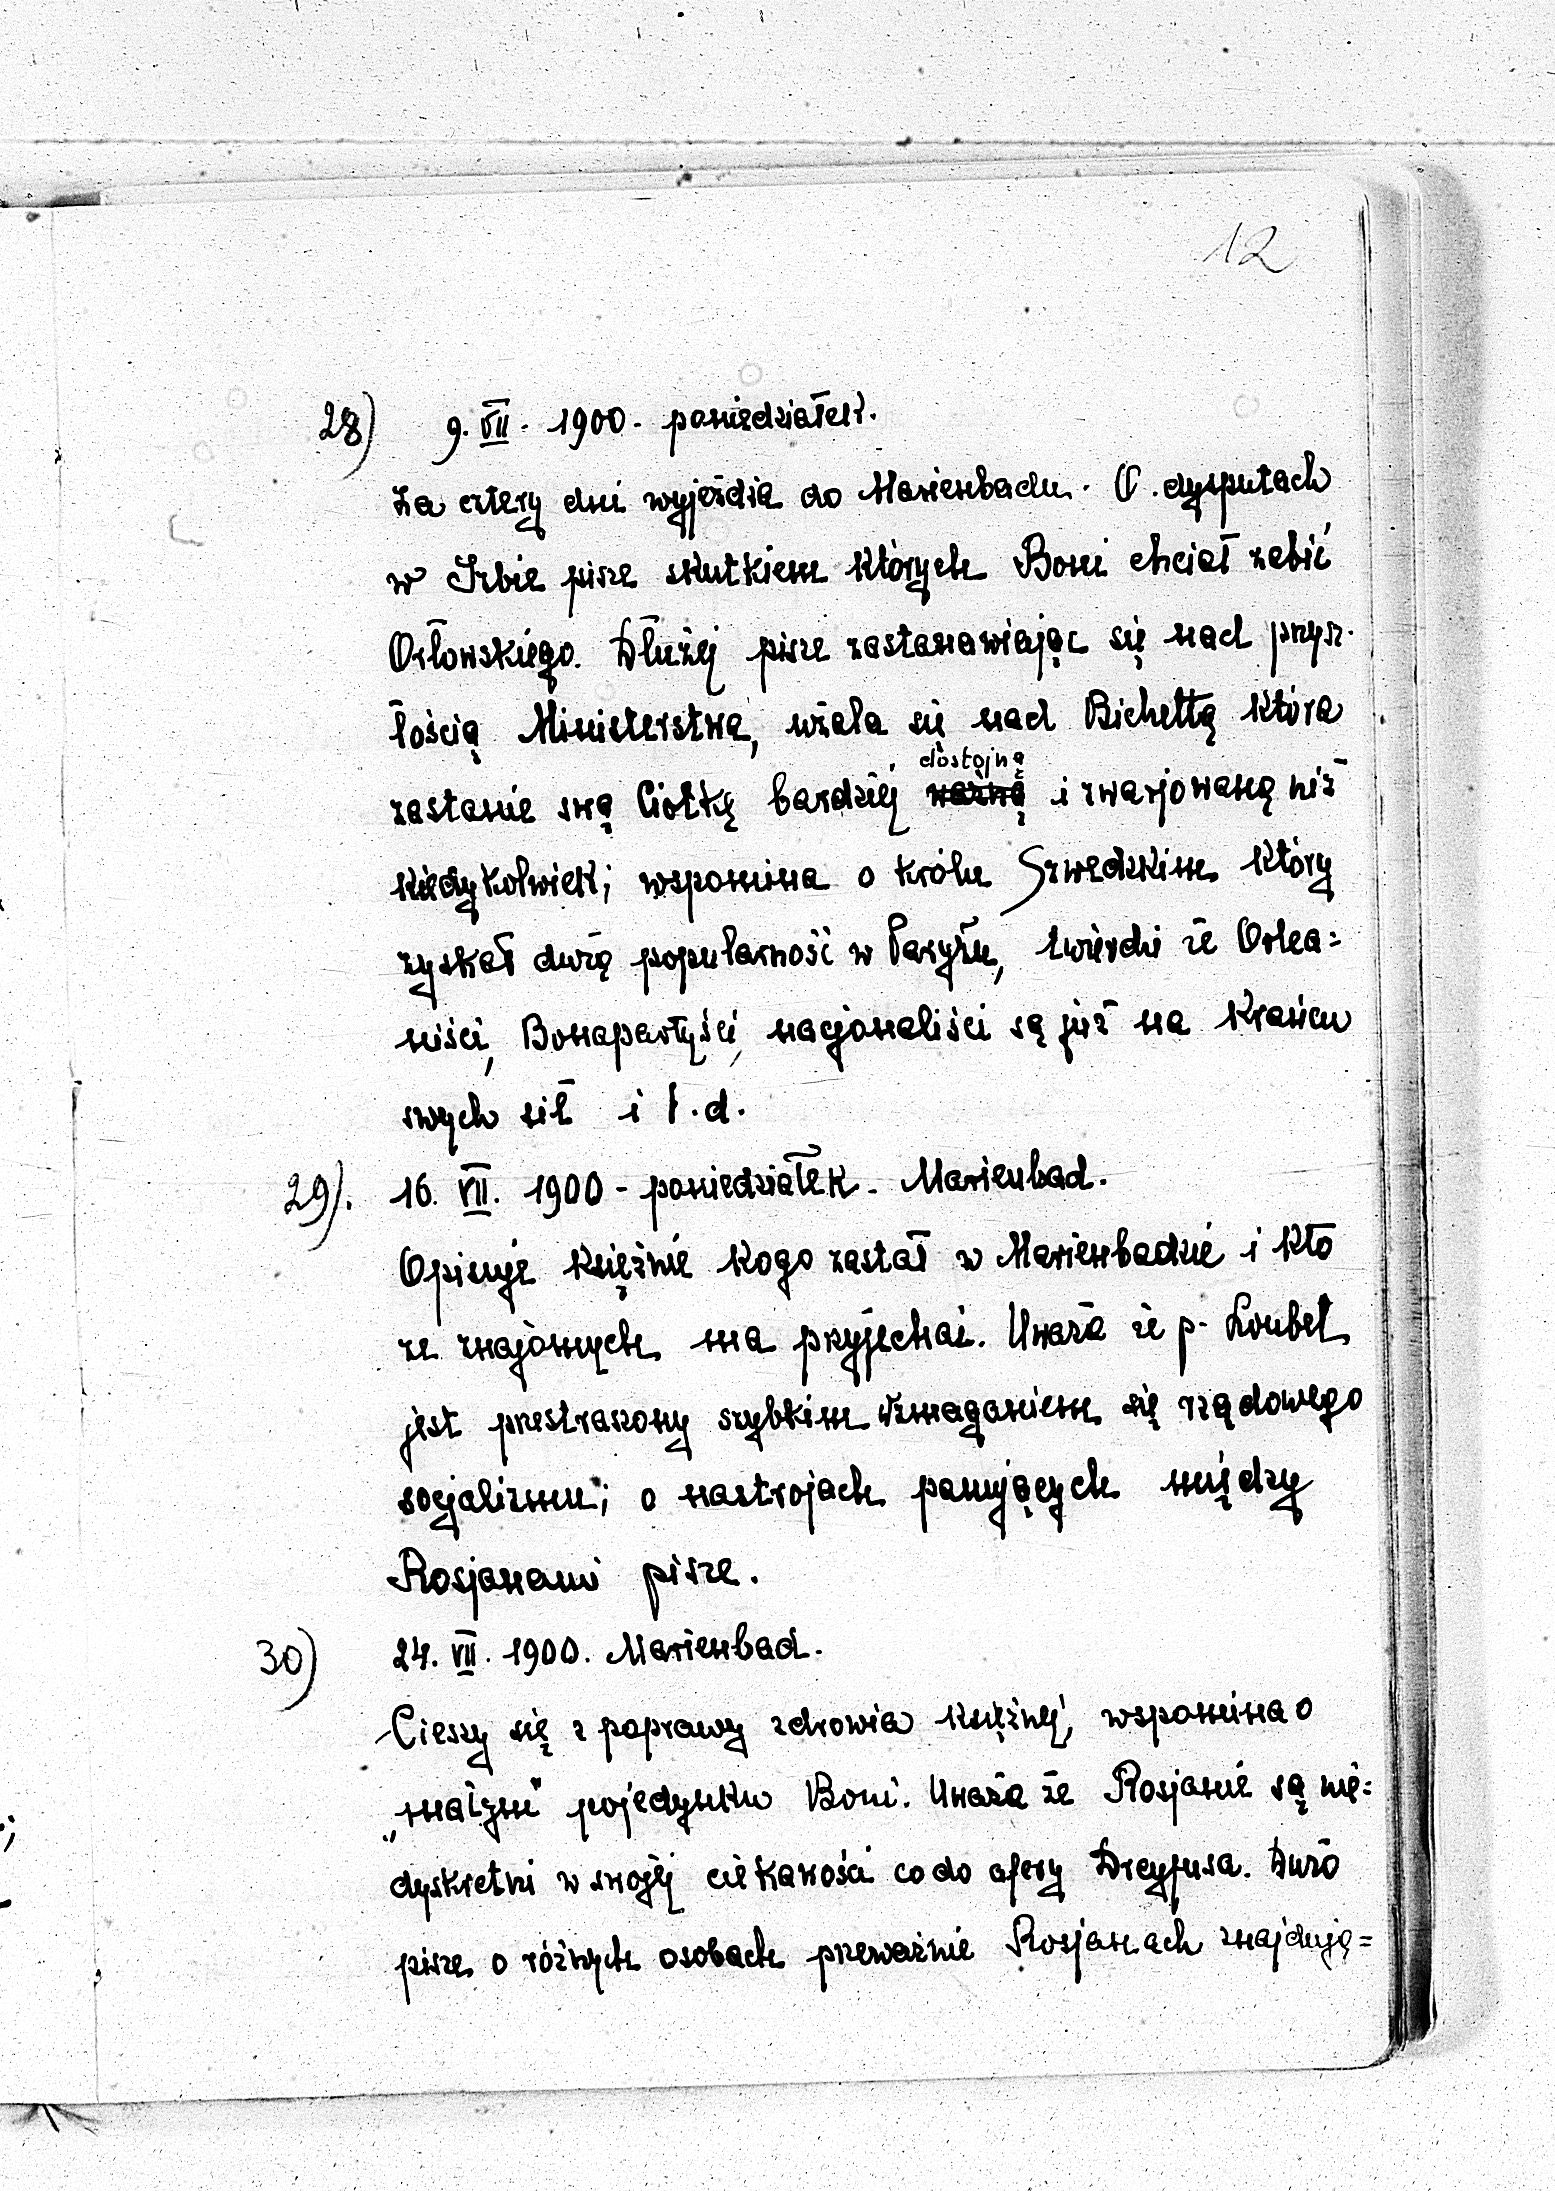 12
28) 9. VII. 1900. poniedziałek.
Za cztery dni wyjeżdża do Marienbadu. O dysputach
w Izbie pisze skutkiem których Boni chciał zabić
Orłowskiego. Dłużej pisze zastanawiając się nad przysz-
łością Ministerstwa, użala się nad Bichettą która
dostojną
zastanie swą Ciotkę bardziej ważną i zwarjowaną niż
kiedykolwiek; wspomina o królu Szwedzkim który
zyskał dużą popularność w Paryżu, twierdzi że Orlea=
niści, Bonapartyści, nacjonaliści są już na krańcu
swych sił i t.d.
29). 16. VII. 1900 - poniedziałek. Marienbad.
Opisuje księżnie kogo zastał w Marienbadzie i kto
ze znajomych ma przyjechać. Uważa że p. Loubet
jest przestraszony szybkim wzmaganiem się rządowego
socjalizmu; o nastrojach panujących między
Rosjanami pisze.
30) 24. VII. 1900. Marienbad.
Cieszy się z poprawy zdrowia księżnej, wspomina o
„małym" pojedynku Boni. Uważa że Rosjanie są nie=
dyskretni w swojej ciekawości co do afery Dreyfusa. Dużo
pisze o różnych osobach przeważnie Rosjanach znajdują=